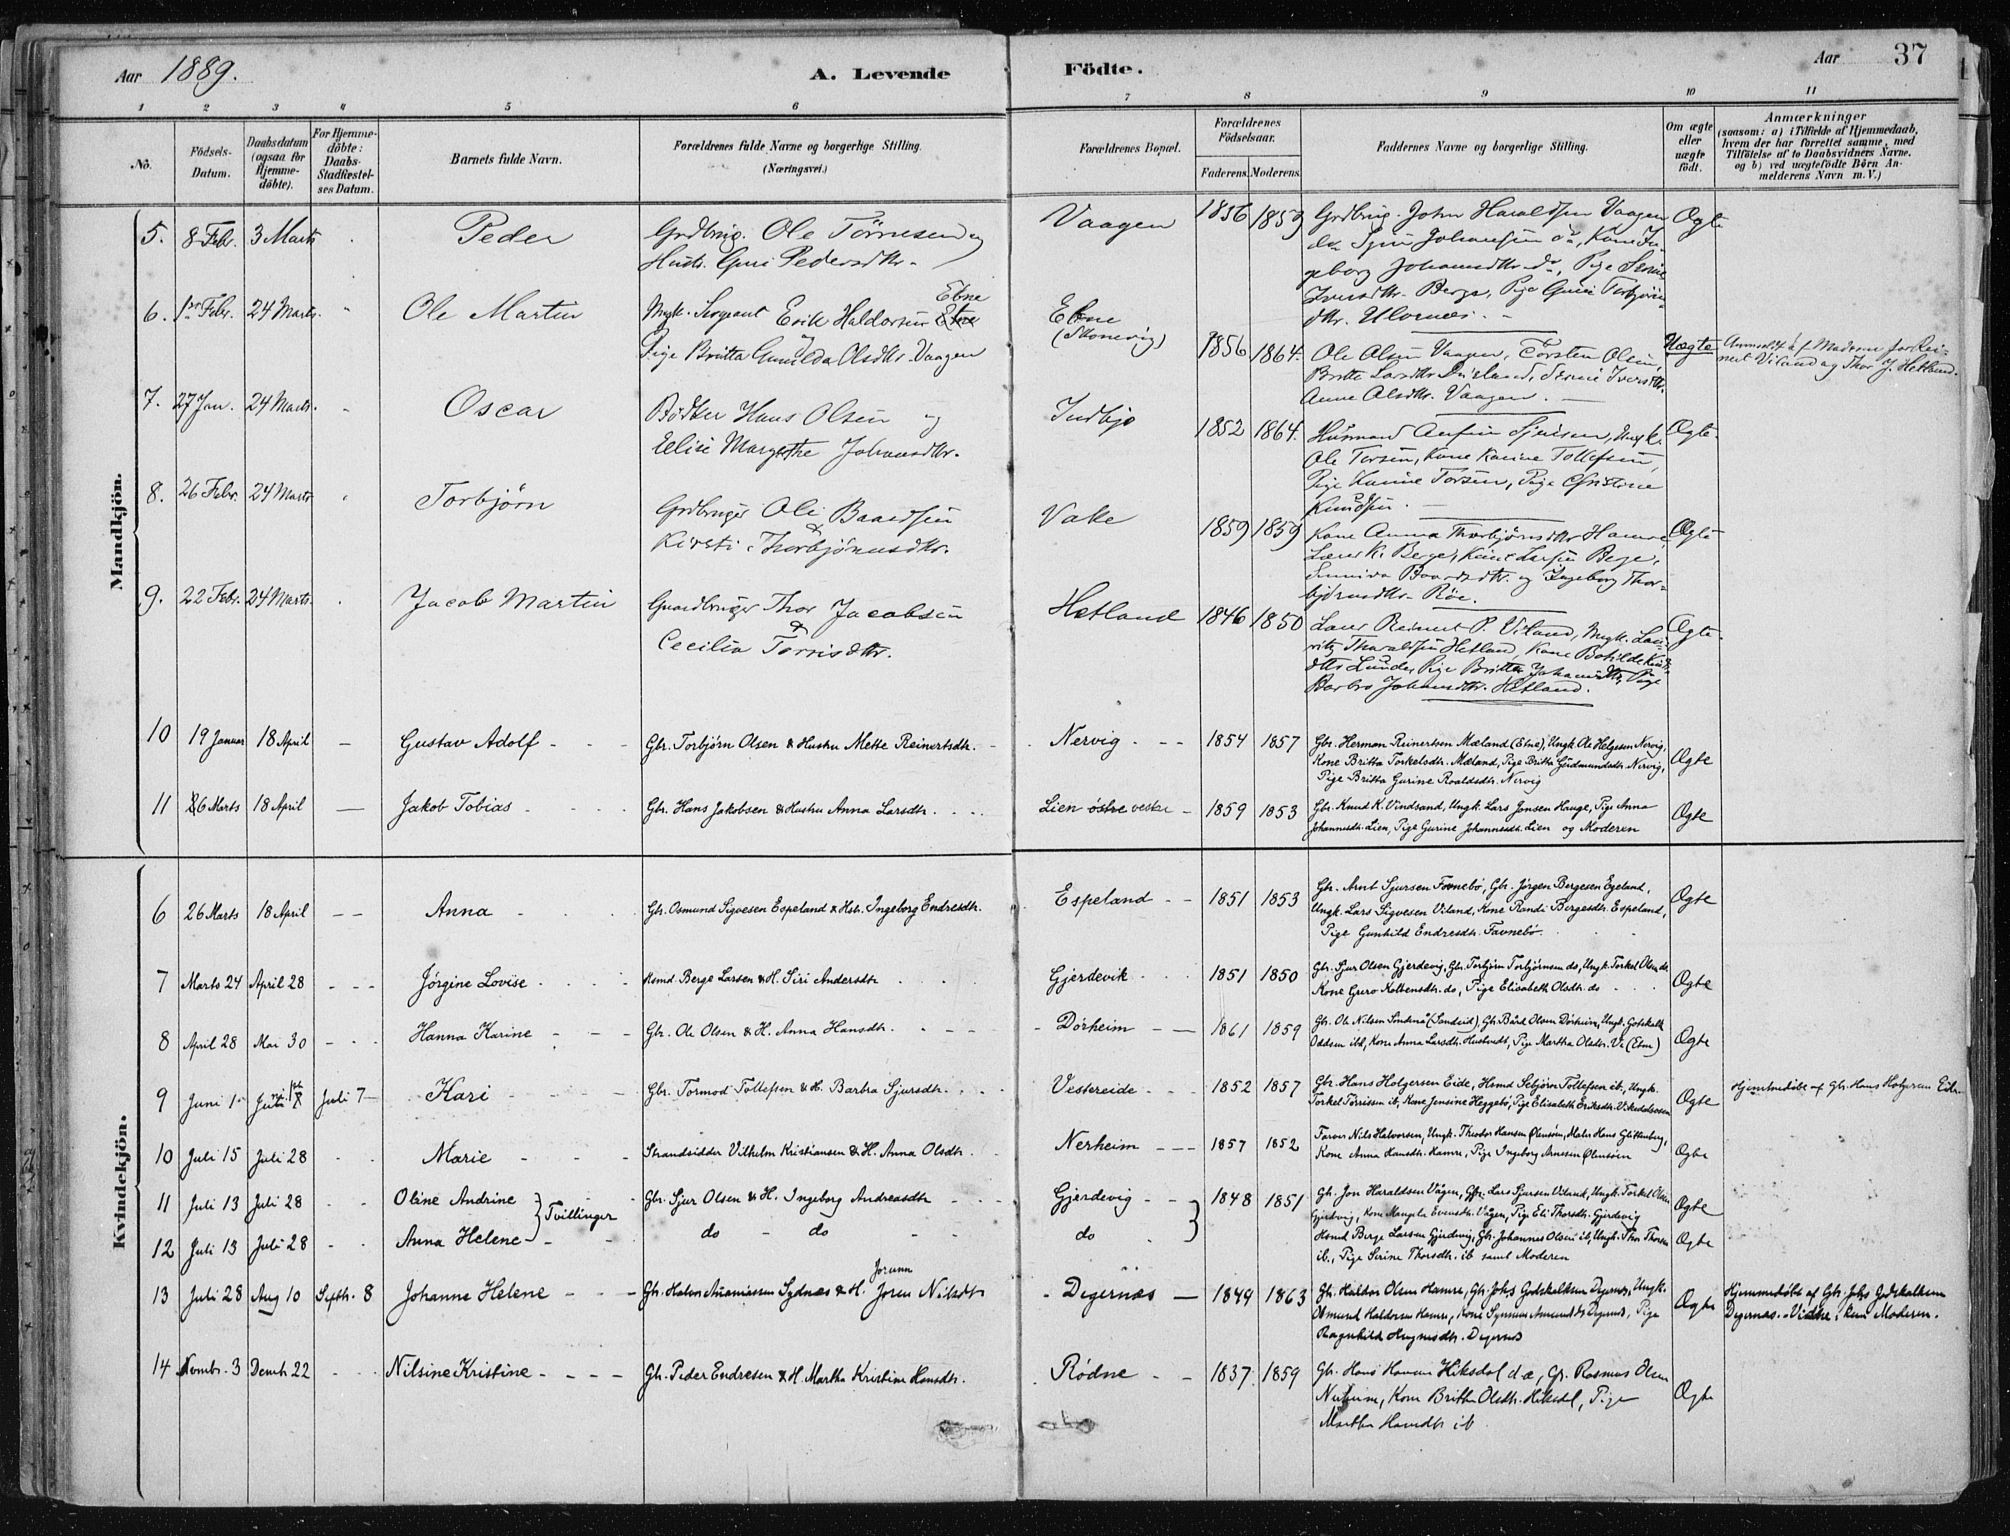 Aar 1889.
A. Levende
Födte.
Aar
37
1 2 3 4 5 6 7 8 9 10 11
No.
Födsels-Datum.
Daabsdatum (ogsaa for Hjemme-döbte).
For Hjemme-döbte: Daabs-Stadfæstel-ses Datum.
Barnets fulde Navn.
Forældrenes fulde Navne og borgerlige Stilling.
(Næringsvei.)
Forældrenes Bopæl.
Forældrenes Födselsaar.
Faderens. Moderens.
Faddernes Navne og borgerlige Stilling.
Om ægte eller uægte födt.
Anmærkninger
(saasom: a) i Tilfælde af Hjemmedaab,
hvem der har forrettet samme, med
Tilföielse af to Daabsvidners Navne,
og b) ved uægtefödte Börn An-
melderens Navn m. V.)
Mandkjön.
5. 8 Febr. 3 Marts Peder Grdbrug. Ole Törnesen og Vaagen 1856 1859 Grdbrug. John Haraldsen Vaagen Ægte
Hustr. Guri Pedersdtr.
do Sjur Johansen do, Kone In-
geborg Johannsdtr. do, Pige Serine
Iversdtr. Berge, Pige Gurie Torbjörns
dtr. Ulvenæs.
6. 1ste Febr. 24 Marts. Ole Martin Ungk. Sergeant Erik Haldorsen Etne Etne
Pige Britta Gunilda Olsdtr. Vaagen
(Skonevig) 1856 1864. Ole Olsen Vaagen, Torsten Olsen, Uægte Anmeldt af Moderen for Rei-
Britte Larsdtr. Serine Iversdtr. nert Viland og Thor J. Hetland.
Anne Olsdtr. Vaagen.
7. 27 Jan. 24 Marts. Oscar Bödker Hans Olsen og Indbjo 1852 1864. Husmand Anfin Sjursen, Ungk. Ægte.
Elise Margrethe Johansdtr.
Ole Torsen, Kone Karine Tollefsen,
Pige Karine Torsen, Pige Christine
Knudsen.
8. 26 Febr. 24 Marts Torbjörn Grdbruger Ole Baardsen Vake 1859 1859 Kone Anna Thorbjörnsdtr Hamre, Ægte
& Kirsti Thorbjönnsdtr.
Lars K. Berge, Berge,
Sunniva Baardsdtr. og Ingeborg Thor-
björnsdtr. Röe.
9. 22 Febr. 24 Marts. Jacob Martin Gaardbruger Thor Jacobsen Hetland 1846 1850 Lars Reinert P. Viland, Ungk. Lau- Ægte.
& Cecilia Torrisdtr.
ritz Tharaldsen Hetland, Kone Botilde Knuds-
dtr Lunde, Pige Britta Johansdtr, Pige
Barbro Johansdtr. Hetland.
10 19 Januar 18 April — Gustav Adolf - - - Gbr. Torbjörn Olsen & Hustru Mette Reinertsdtr. Nervig. - - 1854 1857 Gbr. Herman Reinertsen Mæland (Etne), Ungk. Ole Helgesen Nervig, Ægte
Kone Britta Torkelsdtr. Mæland, Pige Britta Gudmundsdtr. Nervig,
Pige Britta Gurine Roaldsdtr. Nervig
11 26 Marts 18 April — Jakob Tobias Gbr. Hans Jakobsen & Hustru Anna Larsdtr. Lien östre vestre - 1859 1853 Gbr. Knud K. Vindsand, Ungk. Lars Jonsen Hauge, Pige Anna Ægte
Johannesdtr. Lien, Pige Gurine Johannesdtr. Lien og Moderen
Kvindekjön.
6 26 Marts 18 April - - Anna Gbr. Osmund Sigvesen Espeland & Hstr. Ingeborg Endresdtr. Espeland - - 1851 1853 Gbr. Arnt Sjursen Favnebö, Gbr. Jörgen Bergesen Egeland, Ægte
Ungk. Lars Sigvesen Viland, Kone Randi Bergesdtr. Espeland,
Pige Gunhild Endresdtr. Favnebö.
7 Marts 24 April 28 - - - Jörgine Lovise Hsmd Berge Larsen & H. Siri Andersdtr Gjerdevik 1851 1850 Gbr. Sjur Olsen Gjerdevig, Gbr. Torbjörn Torbjörnsen do, Ungk. Torkel Olsen do Ægte
Kone Guro Kolbensdtr. do, Pige Elisabeth Olsdtr. do
8 April 28 Mai 30 - - Hanna Karine - - - Gbr. Ole Olsen & H. Anna Hansdtr. Dörheim - — 1861 1859 Gbr. Ole Nilsen (Sandeid), Gbr Bård Olsen Dörheim, Ungk. Gotskalk Ægte
Oddsen ibd, Kone Anna Larsdtr. Hustvedt, Pige Martha Olsdtr. Ve (Etne)
9 Juni 1 Juli 7 — Kari Gbr. Tormod Tollefsen & H. Barbra Sjursdtr. Vestereide - - - 1852 1857 Gbr. Hans Holgersen Eide, Hsmd Sebjörn Tollefsen ib., Ungk. Ægte Hjemmedöbt af Gbr. Hans Holgersen Eide
Torkel Torrissen ib, Kone Jensine Heggebö, Pige Elisabeth Eriksdtr. Vikedalsosen
10 Juli 15 Juli 28 Marie Strandsidder Vilhelm Kristiansen & H. Anna Olsdtr. Nerheim - - - 1857 1852 Farver Nils Halvorsen, Ungk. Theodor Hansen Ølensöen, Maler Hans Glittenberg, Ægte
Kone Anna Hansdtr. Hamre, Pige Ingeborg Arnesen Ølensöen
11 Juli 13 Juli 28 Oline Andrine } Tvillinger Gbr. Sjur Olsen & H. Ingeborg Andreasdtr Gjerdevig - - } 1848 1851 Gbr. Jon Haraldsen Vågen, Gbr. Lars Sjursen Viland, Ungk. Torkel Olsen Ægte
Gjerdevig, Kone Mangela Evensdtr. Vågen, Pige Eli Thorsdtr. Gjerdevig
12 Juli 13 Juli 28 Anna Helene do do do Hsmd Berge Larsen Gjerdevig, Gbr. Johannes Olsen ib, Ungk. Thor Thorsen Ægte
ib., Pige Serine Thorsdtr. ib samt Moderen
13 Juli 28 Aug 10 Septbr. 8 Johanne Helene - - - Gbr. Halvor Ananiassen Sydnæs & H. Joren Jorunn Nilsdtr Degernæs — 1849 1863 Gbr. Haldor Olsen Hamre, Gbr. Johs Godskalksen Degernæs, Ungk. Ægte Hjemmedöbt af Gbr. Johs Godskalksen
Osmund Haldorsen Hamre, Kone Synneve Amundsdtr Degernæs, Pige Degernæs. - Vidne: kun Moderen.
Ragnhilda Degernæs
14 Novmbr. 3 Decmbr. 22 Nilsine Kristine - - - - Gbr. Peder Endresen & H. Martha Kristine Hansdtr. Rödne - - 1837 1859 Gbr. Hans Hiksdal d. æ, Gbr. Rasmus Olsen Ægte
Nerheim, Kone Britha Olsdtr. Hiksdal, Pige
Martha Hansdtr ib